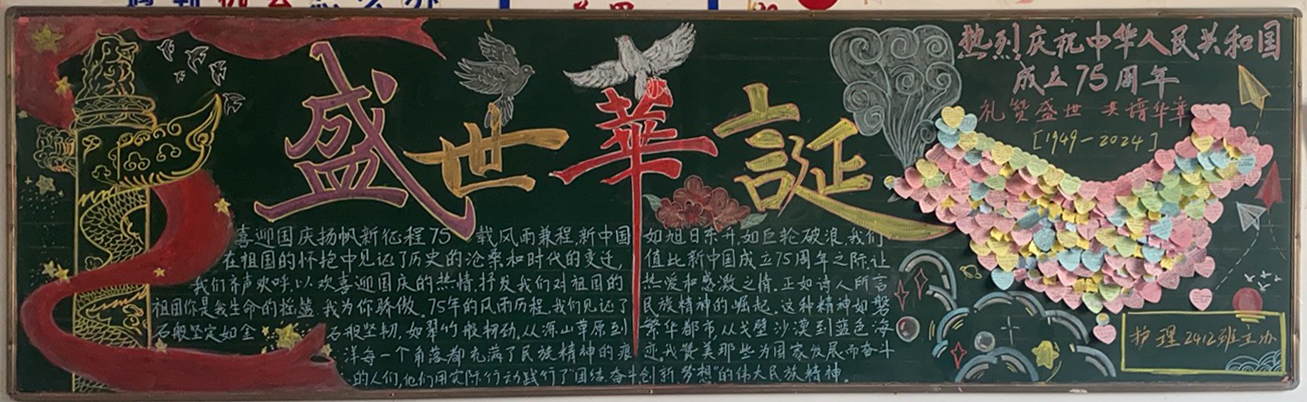 盛世華誕
热烈庆祝中华人民共和国
成立75周年
礼赞盛世 共谱华章
[1949-2024]
喜迎国庆扬帆新征程75载风雨兼程,新中国如旭日东升,如巨轮破浪,我们
在祖国的怀抱中见证了历史的沧桑和时代的变迁,值此新中国成立75周年之际让
我们齐声欢呼,以欢喜迎国庆的热情,抒发我们对祖国的热爱和感激之情。正如诗人所言
祖国你是我生命的摇篮,我为你骄傲。75年的风雨历程,我们见证了民族精神的崛起。这种精神如磐
石般坚定如金石般坚韧,如翠竹般挺劲,从深山草原到繁华都市从戈壁沙漠到蓝色海
洋每一个角落都充满了民族精神的痕迹,我赞美那些为国家发展而奋斗
的人们,他们用实际行动践行了"团结奋斗创新梦想"的伟大民族精神。
护理2412班主办